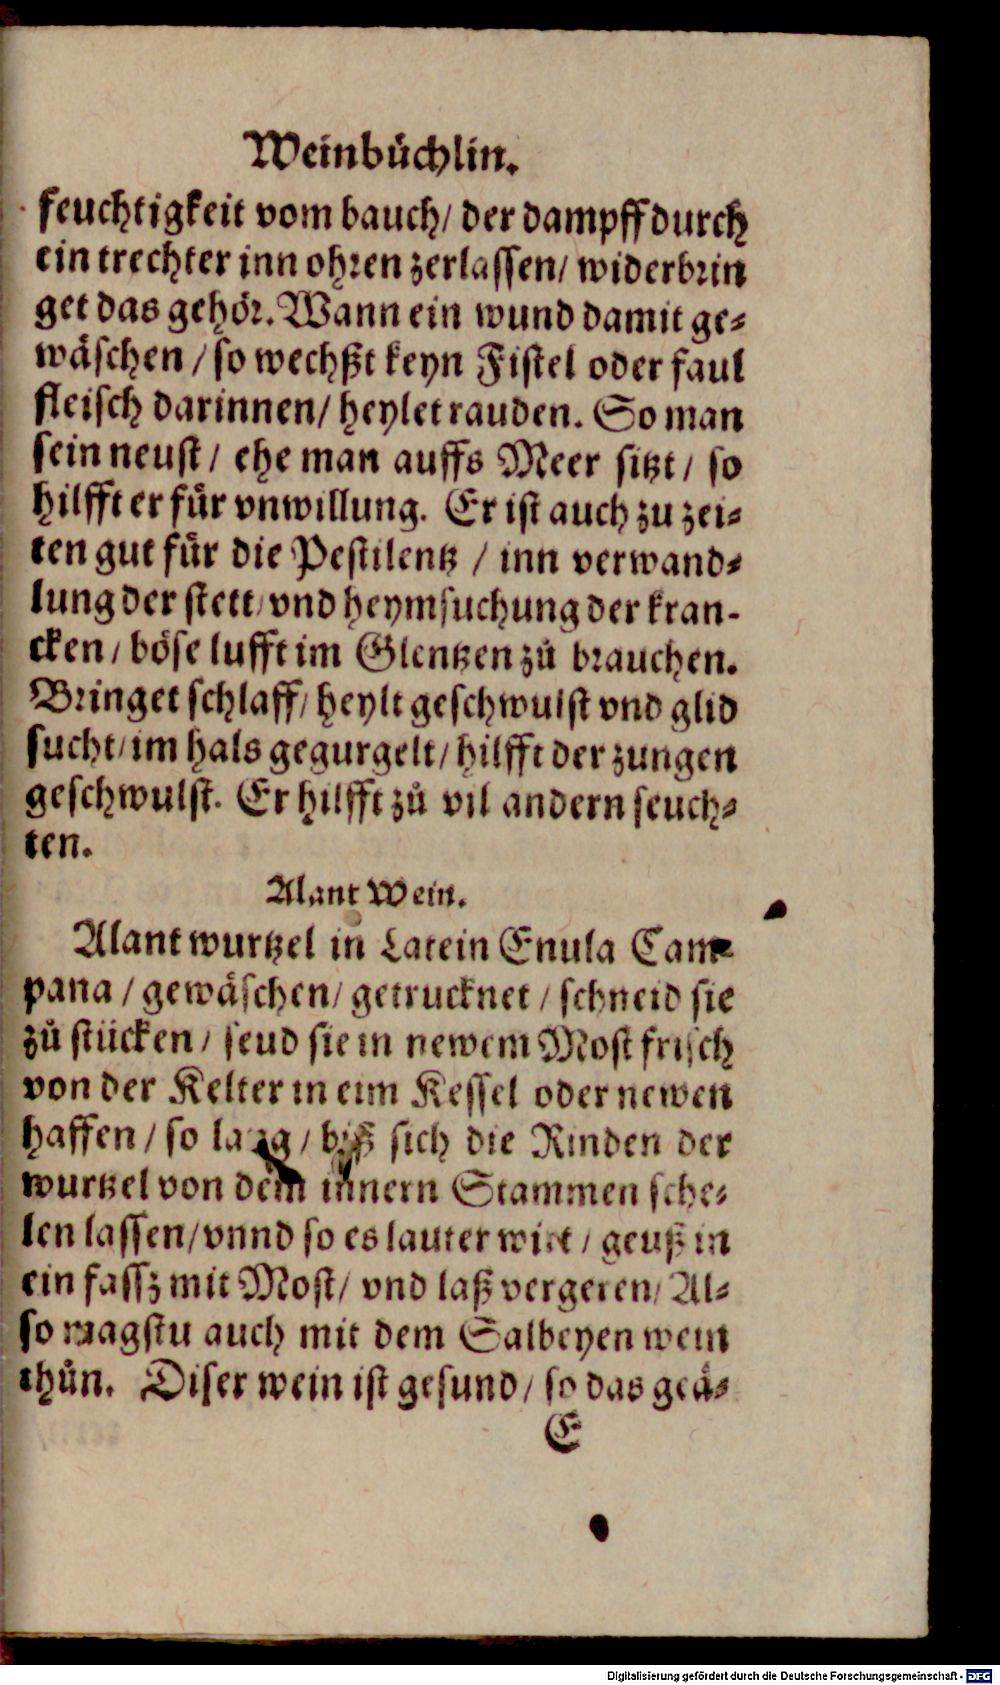 Weinbůchlin.
feuchtigkeit vom bauch/ der dampff durch
ein trechter inn ohren zerlassen/ widerbrin
get das gehör. Wann ein wund damit ge⸗
wäschen / so wechßt keyn Fistel oder faul
fleisch darinnen/ heylet rauden. So man
sein neust / ehe man auffs Meer sitzt / so
hilfft er für vnwillung. Er ist auch zu zei⸗
ten gut für die Pestilentz / inn verwand⸗
lung der stett/ vnd heymsuchung der kran-
cken / böse lufft im Glentzen zů brauchen.
Bringet schlaff/ heylt geschwulst vnd glid
sucht/ im hals gegurgelt/ hilfft der zungen
geschwulst. Er hilfft zů vil andern seuch⸗
ten.
Alant Wein.
Alant wurtzel in Latein Enula Cam⸗
pana / gewäschen/ getrucknet / schneid sie
zů stücken / seud sie in newem Most frisch
von der Kelter in eim Kessel oder newen
haffen / so lang / biß sich die Rinden der
wurtzel von dem innern Stammen sche⸗
len lassen/ vnnd so es lauter wirt / geuß in
ein fassz mit Most/ vnd laß vergeren/ Al⸗
so magstu auch mit dem Salbeyen wein
thůn. Diser wein ist gesund / so das geä⸗
E
Digitalisierung gefördert durch die Deutsche Forschungsgemeinschaft - DFG